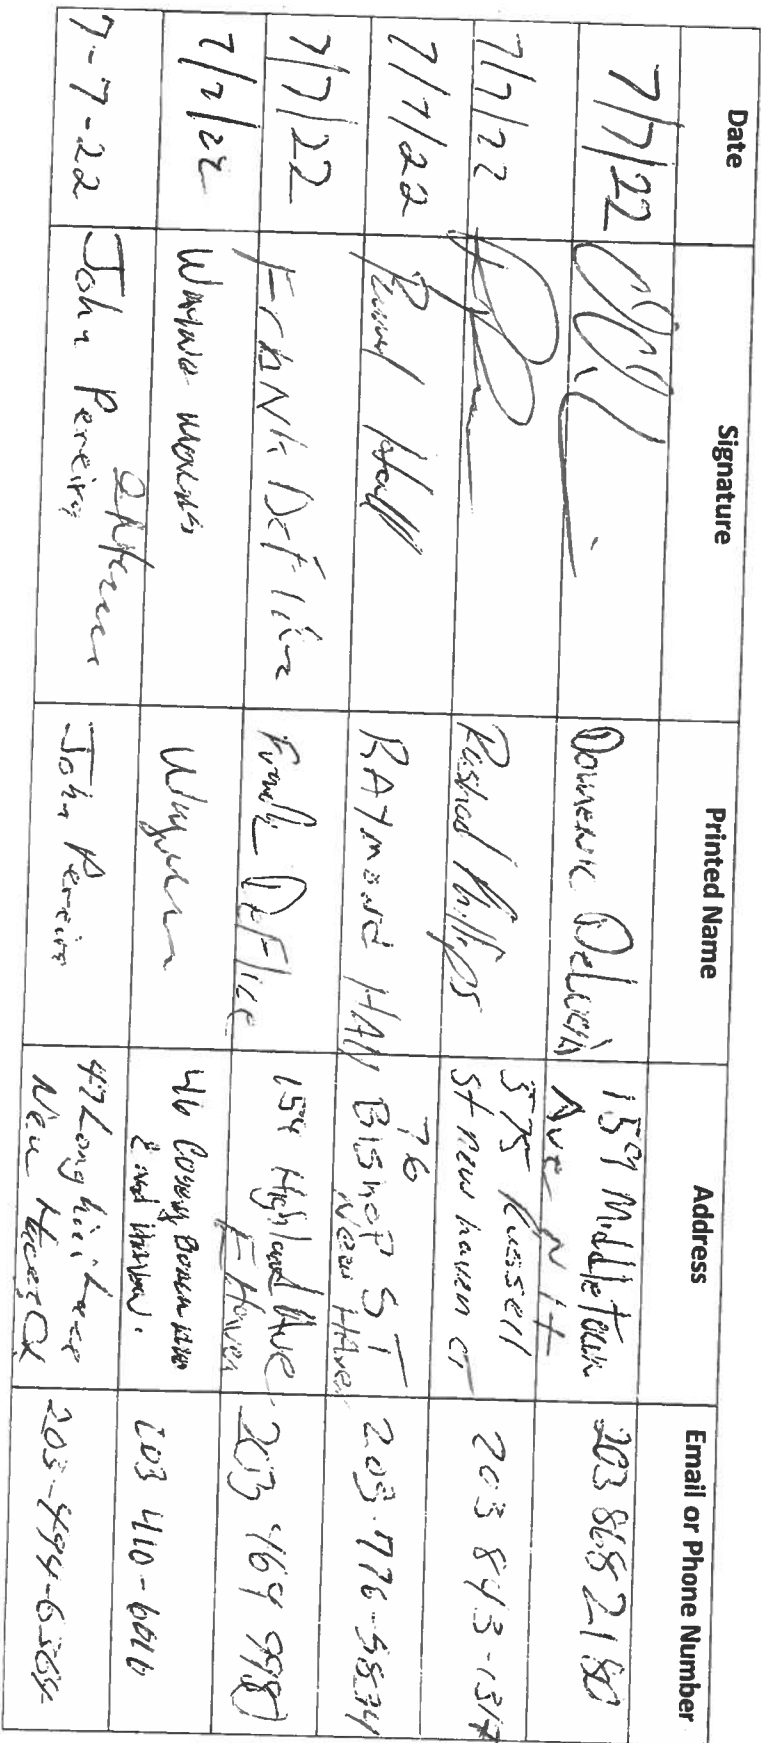 Date Signature Printed Name Address Email or Phone Number
7/7/22 Domenic DeLucia 159 Middletown
Ave N H 203 868 2180
7/7/22 Rashad Phillips 375 Russell
st new haven ct 203 843-1317
7/7/22 Raymond Hall RAYMOND HAll 76
BISHOP ST
New Haven 203-776-5834
7/7/22 FrANk DeFlice Frank DeFlice 154 Highland Ave
E Haven 203 469 9980
7/7/22 Wayne 46 Cosey Beach
203 410-6016
7-7-22 John Pereira John Pereira 47 Long Hill
New Haven Ct 203-494-6364